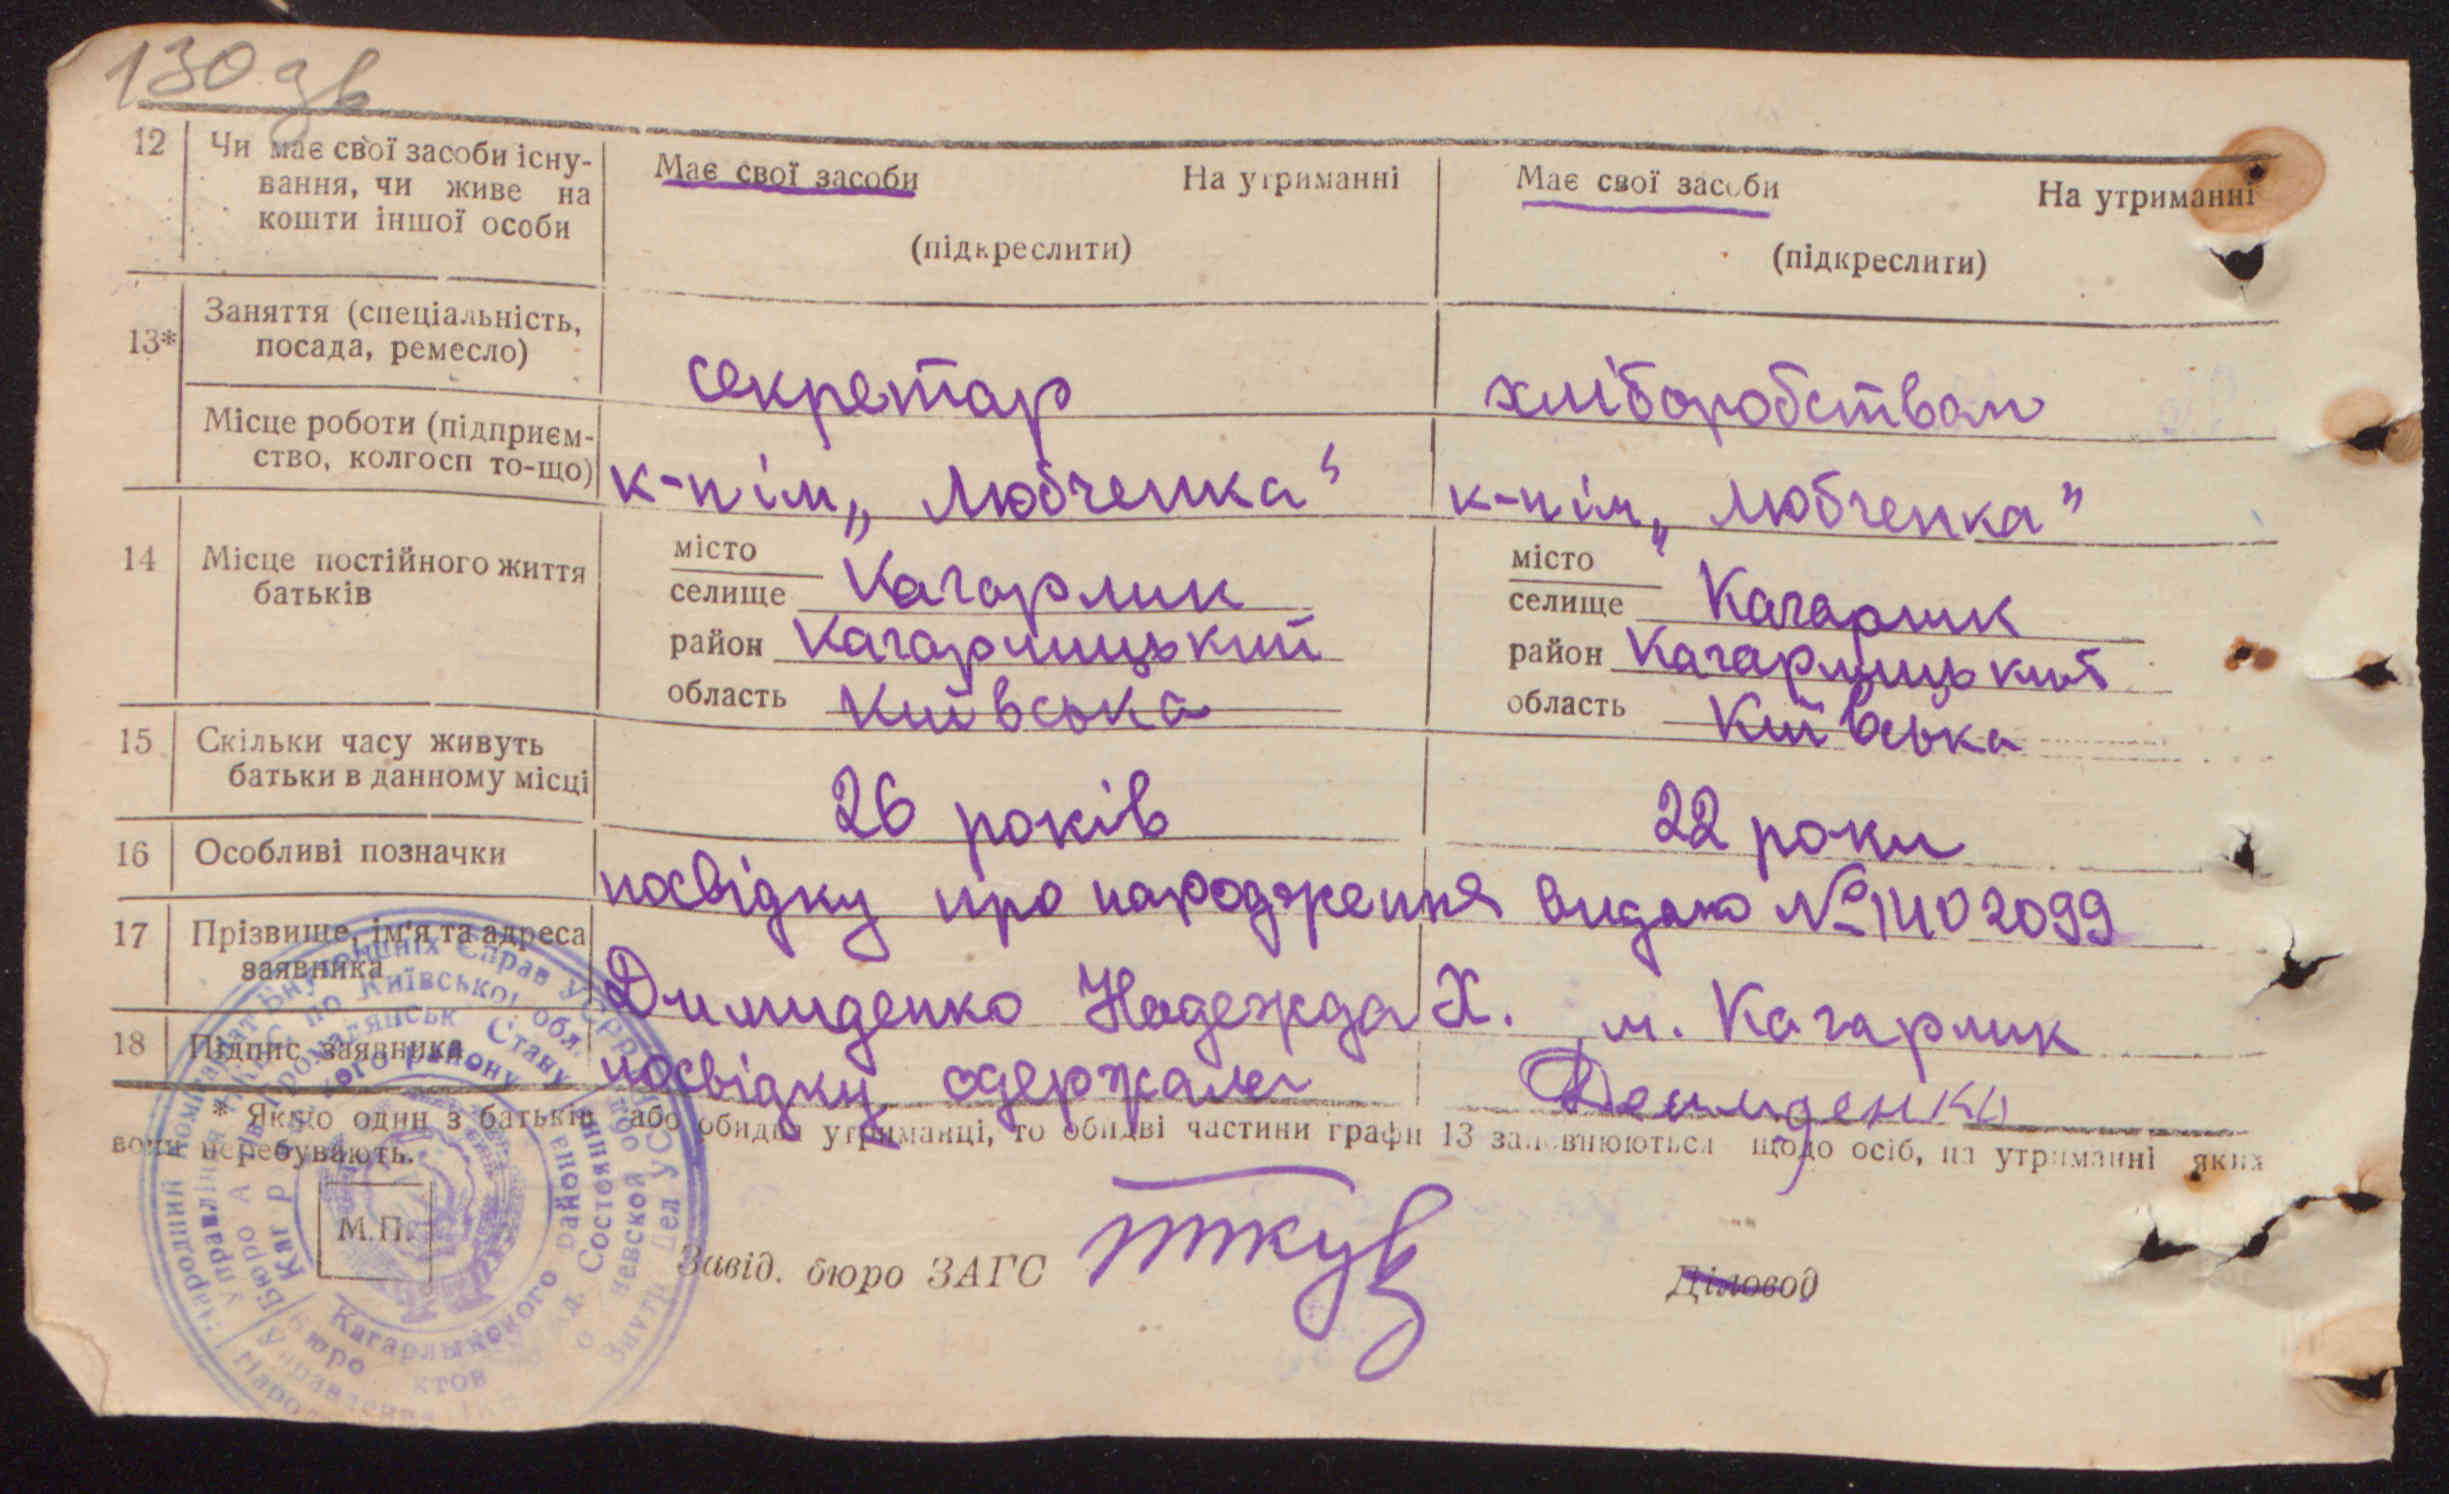 130 зв
12 Чи має свої засоби існу-
вання, чи живе на
кошти іншої особи
Має свої засоби На утриманні
(підкреслити)
Має свої засоби На утриманні
(підкреслити)
13* Заняття (спеціальність,
посада, ремесло)
секретар
хліборобством
Місце роботи (підприєм-
ство, колгосп то-що)
к-п ім „Любченка"
к-п ім „Любченка"
14 Місце постійного життя
батьків
місто
селище Кагарлик
район Кагарлицький
область Київська
місто
селище Кагарлик
район Кагарлицький
область Київська
15 Скільки часу живуть
батьки в данному місці
26 років
22 роки
16 Особливі позначки
посвідку про народження видано № 1402099
17 Прізвище, ім'я та адреса
заявника
Димиденко Надежда Х. м. Кагарлик
18 Підпис заявника
посвідку одержала Демиденко
* Якщо один з батьків або обидва утриманці, то обидві частини графи 13 заповнюються щодо осіб, на утриманні яких
вони перебувають.
М.П.
Завід. бюро ЗАГС
Діловод
Кагарлыкского района